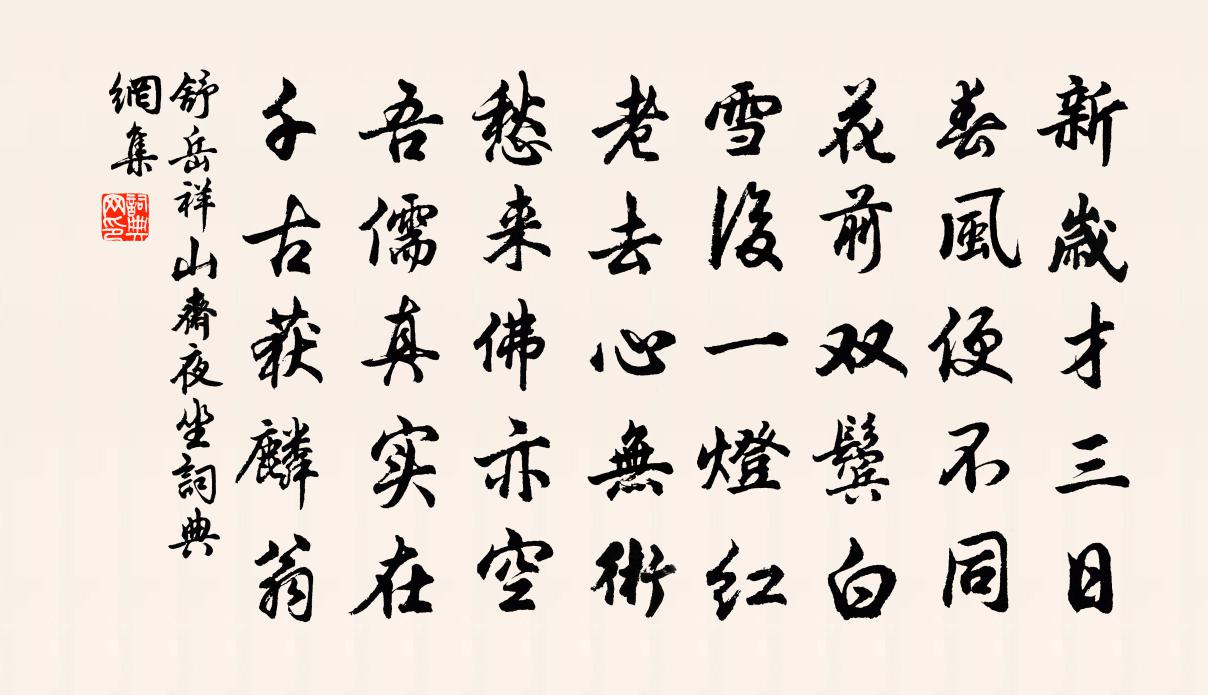 新歲才三日
春風便不同
花前双鬓白
雪後一燈红
老去心無術
愁来佛亦空
吾儒真实在
千古获麟翁
舒岳祥山齋夜坐詞典
網集
詞典
网印